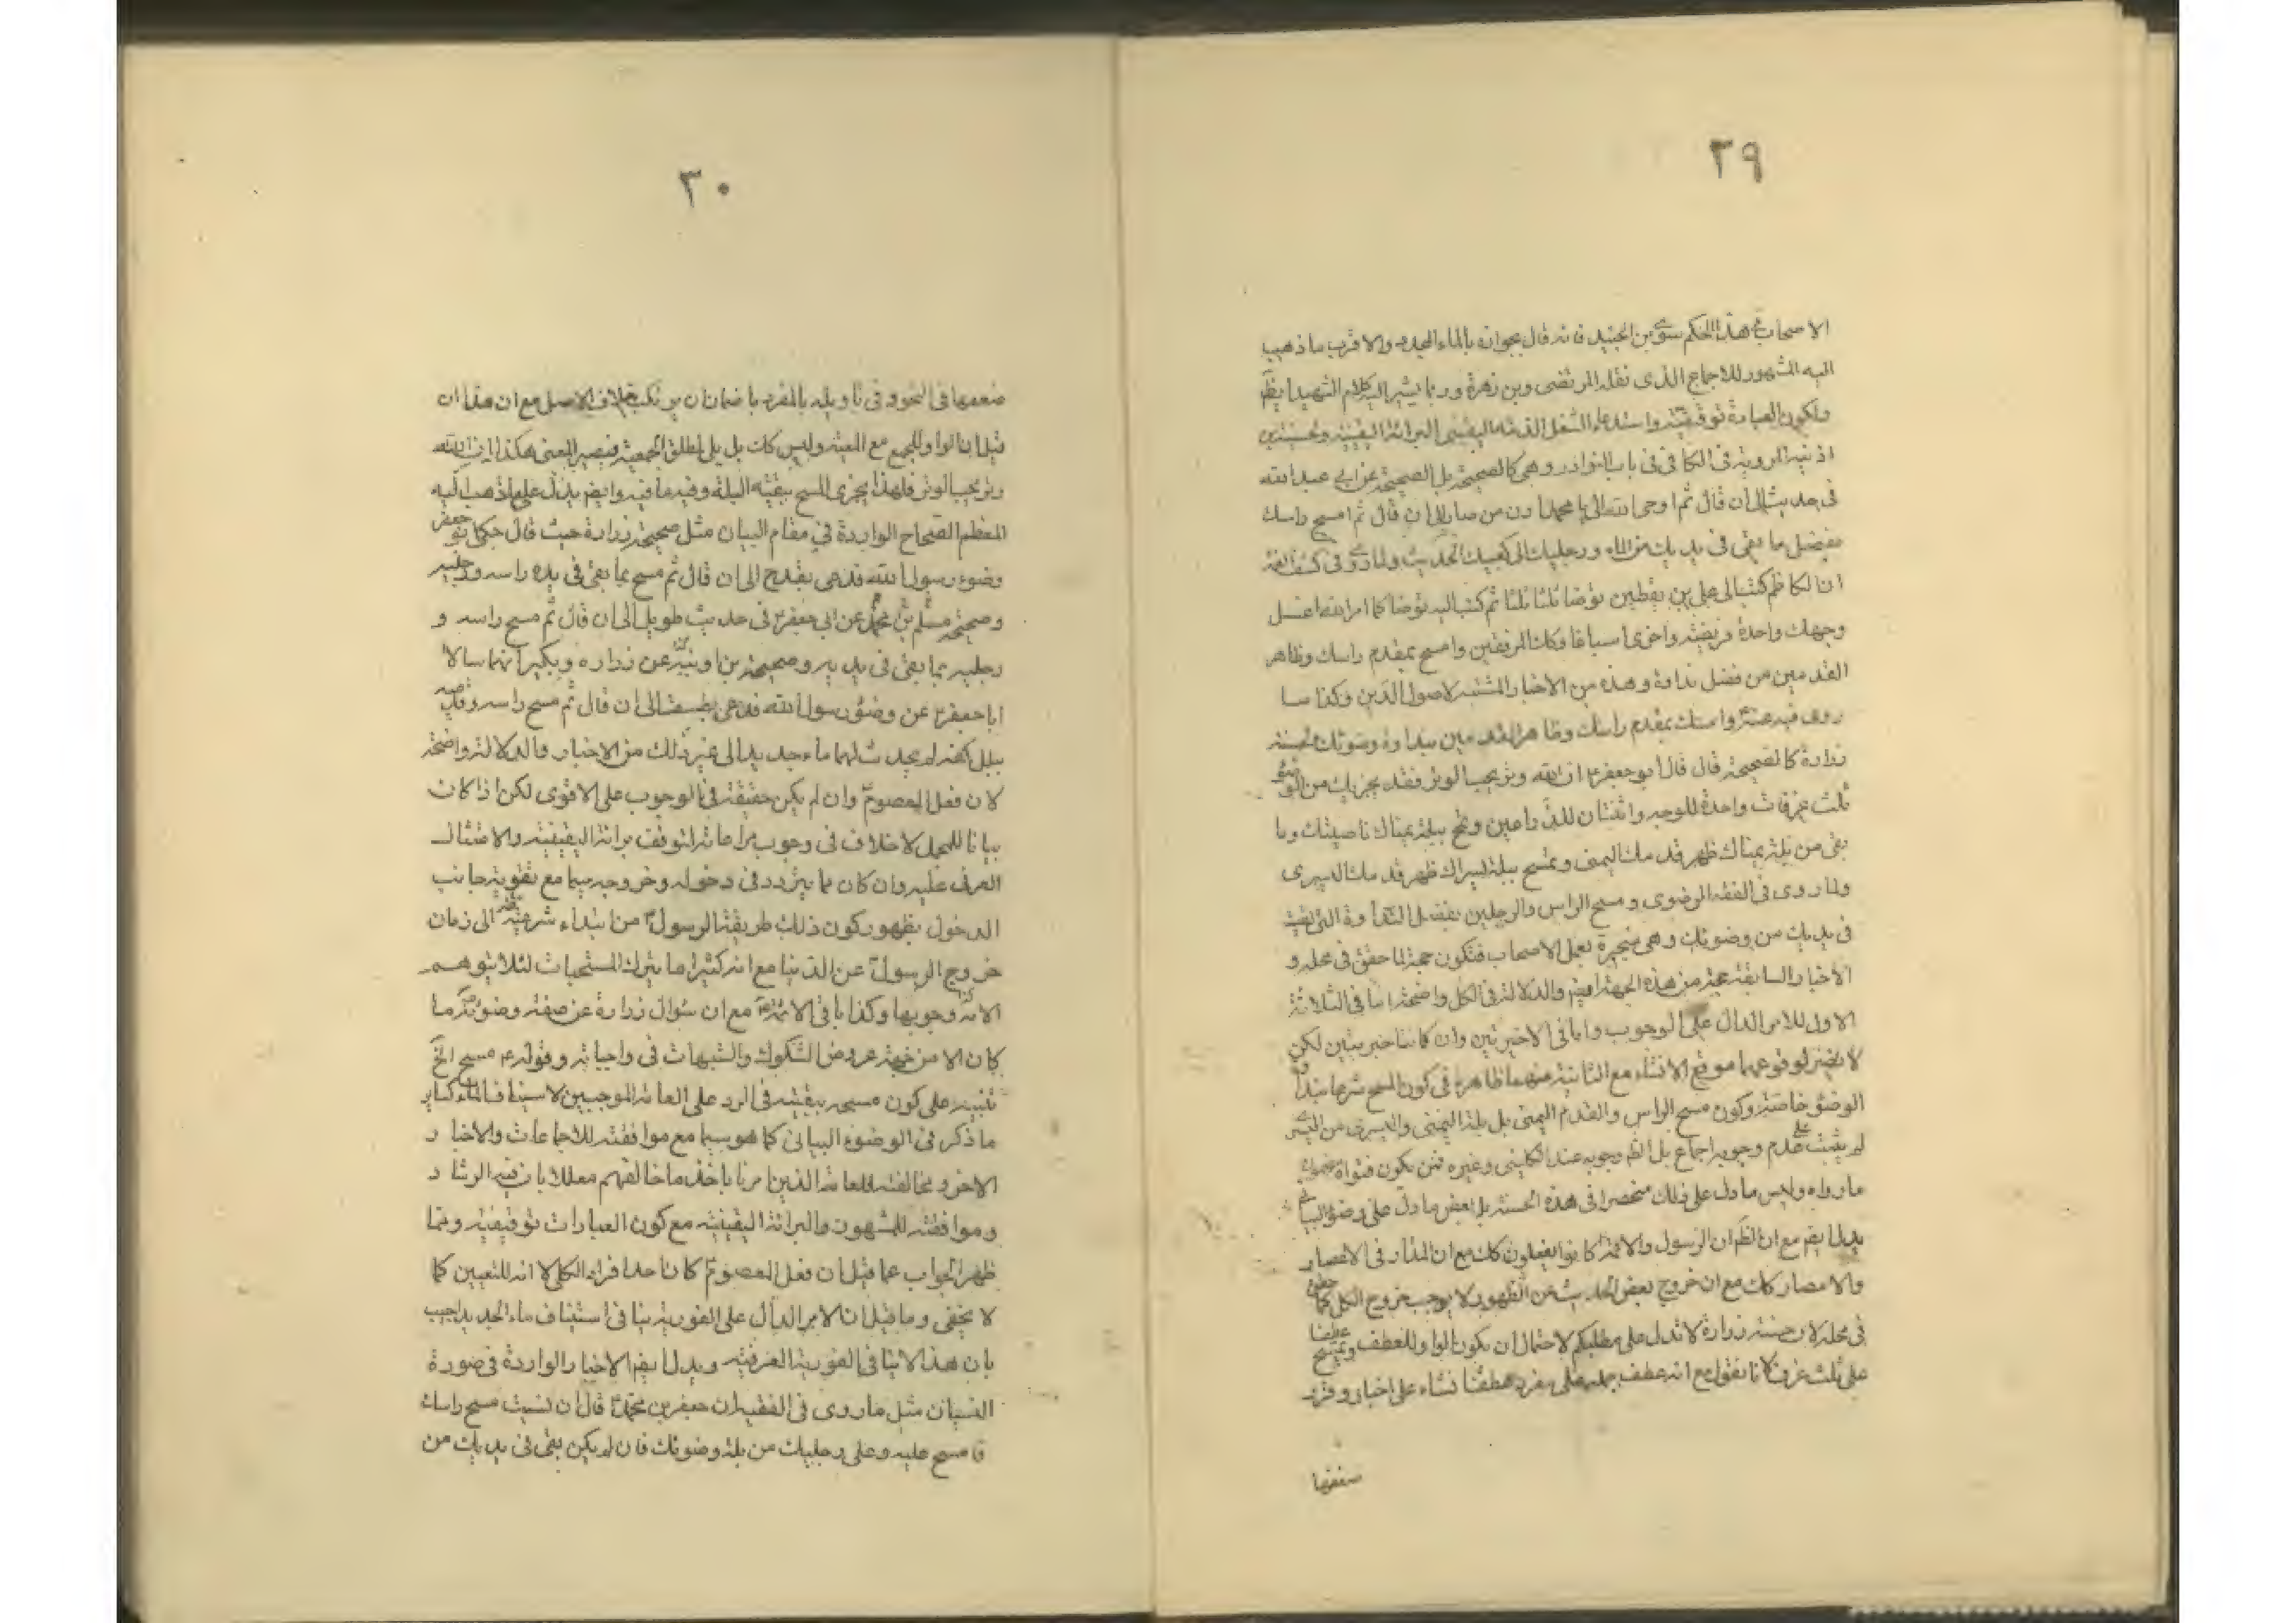 ٢٩
الاصحاب فى هذا الحكم سوى بن الجنيد فانه قال بجوازه بالماء الجديد والاقرب ما ذهب
اليه المشهور للاجماع الذى نقله المرتضى وبن زهرة وربما يشير اليه كلام الشهيد ايظً
ولكون العبادة توقيفيّة واستدعاء الشغل الذمة اليقينى البرائة اليقينيّة ولحسنة بن
اذينة المروية فى الكافى فى باب النوادر وهى كالصحيحة بل الصحيحة عن ابى عبد الله
فى حديث الى ان قال ثم اوحى الله الى يا محمد ادن من صاد الى ان قال ثم امسح راسك
بفضل ما بقى فى يديك من الماء ورجليك الى كعبيك الحديث ولما روى فى كشف الغمة
ان الكاظم كتب الى على بن يقطين توضا ثلثا ثلثا ثم كتب اليه توضا كما امر الله اغسل
وجهك واحدة فريضة واخرى اسباغا وكك المرفقين وامسح بمقدم راسك وظاهر
القدمين من فضل نداوة وهذه من الاخبار المثبتة لاصول الدين وكذا سا
روى فيه عنه وامسك بمقدم راسك وظاهر القدمين بنداوة وضوئك لحسنة
زرارة كالصحيحة قال قال ابو جعفر ع ان الله وتر يحب الوتر فقد يجزيك من الوضوء
ثلث غرفات واحدة للوجه واثنتان للذراعين وتمسح ببلة يمناك ناصيتك وما
بقى من بلة يمناك ظهر قدمك اليمنى وتمسح ببلة يسراك ظهر قدمك اليسرى
ولما روى فى الفقه الرضوى ومسح الراس والرجلين بفضل النداوة التى بقيت
فى يديك من وضوئك وهى منجبرة بعمل الاصحاب فتكون حجة لما حقق فى محله و
الاخبار السابقة حجة من هذه الجهة ايضً والدلالة فى الكل واضحة اما فى الثلاثة
الاول للامر الدال على الوجوب واما فى الاخيرتين وان كانتا خبريتين لكن
لا يضر لوقوعهما موقع الانشاء مع الثانية منهما ظاهرة فى كون المسح شرعا بنداوة
الوضوء خاصة وكون مسح الراس والقدم اليمنى بل بلة اليمنى واليسرى من اليسرى
لم يثبت على عدم وجوبه اجماع بل الظ وجوبه عند الكلينى وغيره فمن يكون فتواه
ما رواه وليس ما دل على ذلك منحصرا فى هذه الحسنة بل بعض ما دل على وضوء البيانى
يدل ايضم مع ان الظم ان الرسول والائمة كانوا يفعلون كك مع ان المدار فى الاعصار
والامصار كك مع ان خروج بعض الحديث عن الظهور لا يوجب خروج الكل كما حقق
فى محله لان حسنة زرارة لا تدل على مطلبكم لاحتمال ان يكون الواو للعطف وتمسح عطفا
على ثلث غرف لانا نقول مع انه عطف جملة على مفرد وعطف انشاء على اخبار وقرر
ضعفها
٣٠
ضعفها فى النحو وفى تاويله بالمفرد باضمان ان يرتكب خلاف الاصل مع ان هذا ان
قيل بان الواو للجمع مع المعية وليس كك بل يلى لمطلق الجمعية فيصير المعنى هكذا ان الله
وتر يحب الوتر فلهذا يجزى المسح ببقية البلة وفيه ما فيه وايضم يدل على ما ذهب اليه
المعظم الصحاح الواردة فى مقام البيان مثل صحيحة زرارة حيث قال حكى ابو جعفر
وضوء رسول الله فدعى بقدح الى ان قال ثم مسح بما بقى فى يده راسه ورجليه
وصحيحة مسلم بن محمد عن ابى جعفر ع فى حديث طويل الى ان قال ثم مسح راسه و
رجليه بما بقى فى يديه وصحيحة بن اذينة عن زراره وبكير انهما سالا
ابا جعفر ع عن وضوء رسول الله فدعى بطست الى ان قال ثم مسح راسه وقدميه
ببلل كفه لم يحدث لهما ماء جديدا الى غير ذلك من الاخبار والدلالة واضحة
لان فعل المعصوم وان لم يكن حقيقة فى الوجوب على الاقوى لكن اذا كان
بيانا للمجمل لا خلاف فى وجوب مراعاته لتوقف برائة اليقينية والامتثال
العرفى عليه وان كان مما يتردد فى دخوله وخروجه سيما مع تقوية جانب
الدخول بظهور كون ذلك طريقة الرسول ص من ابتداء شرعيته الى زمان
خروج الرسول ص عن الدنيا مع انه كثيرا ما يترك المستحبات لئلا يتوهم
الامة وجوبها وكذا باقى الائمة مع ان سؤال زرارة عن صفة وضوئه ما
كان الا من جهة عروض الشكوك والشبهات فى واجباته وقوله ع مسح الخ
تنبيه على كون مسحه ببقيته فى الرد على العامة الموجبين لاستيناف الماء كساير
ما ذكر فى الوضوء البيانى كما هو سيما مع موافقته للاجماعات والاخبار
الاخر ومخالفته للعامة الذين امرنا باخذ ما خالفهم معللا بان فيه الرشاد
وموافقته للمشهور والبرائة اليقينية مع كون العبادات توقيفية ومما
ظهر الجواب عما قيل ان فعل المعصوم كان احد افراد الكلى لا انه للتعيين كما
لا يخفى وما قيل ان الامر الدال على الفورية ينافى استيناف ماء الجديد اجيب
بان هذا لا ينافى الفورية العرفية ويدل ايضم الاخبار الواردة فى صورة
النسيان مثل ما روى فى الفقيه ان جعفر بن محمد قال ان نسيت مسح راسك
فامسح عليه وعلى رجليك من بلة وضوئك فان لم يكن بقى فى يديك من